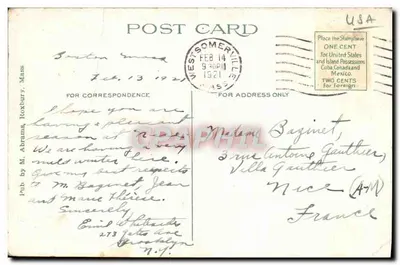 USA
POST CARD
Place the Stamp here
ONE CENT
for United States
and Island Possessions
Cuba, Canada and
Mexico.
TWO CENTS
for Foreign.
WEST SOMERVILLE
FEB 14
9 30 PM
1921
MASS
Boston Mass
Feb. 13 1921
FOR CORRESPONDENCE
FOR ADDRESS ONLY
I hope you are
having a pleasant
season at Nice.
We are having a very
mild winter here.
Give my best respects
to M. Bazinet, Jean
and Marie Thérèse.
Sincerely,
Emil
273 Yates Ave
Brooklyn
N.Y.
Madam Bazinet,
3 rue Antoine Gauthier,
Villa Gauthier
Nice (AM)
France
Pub by M. Abrams, Roxbury, Mass